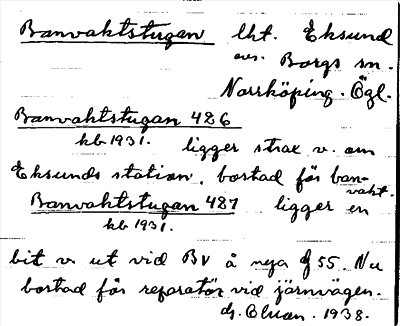 Banvaktstugan lht. Eksund
avs. Borgs sn.
Norrköping. Ögl.
Banvaktstugan 426
kb 1931. ligger strax v. om
Eksunds station, bostad för ban-
vakt.
Banvaktstugan 427 ligger en
kb 1931.
bit v. ut vid BV å nya f 55. Nu
bostad för reparatör vid järnvägen.
1938.